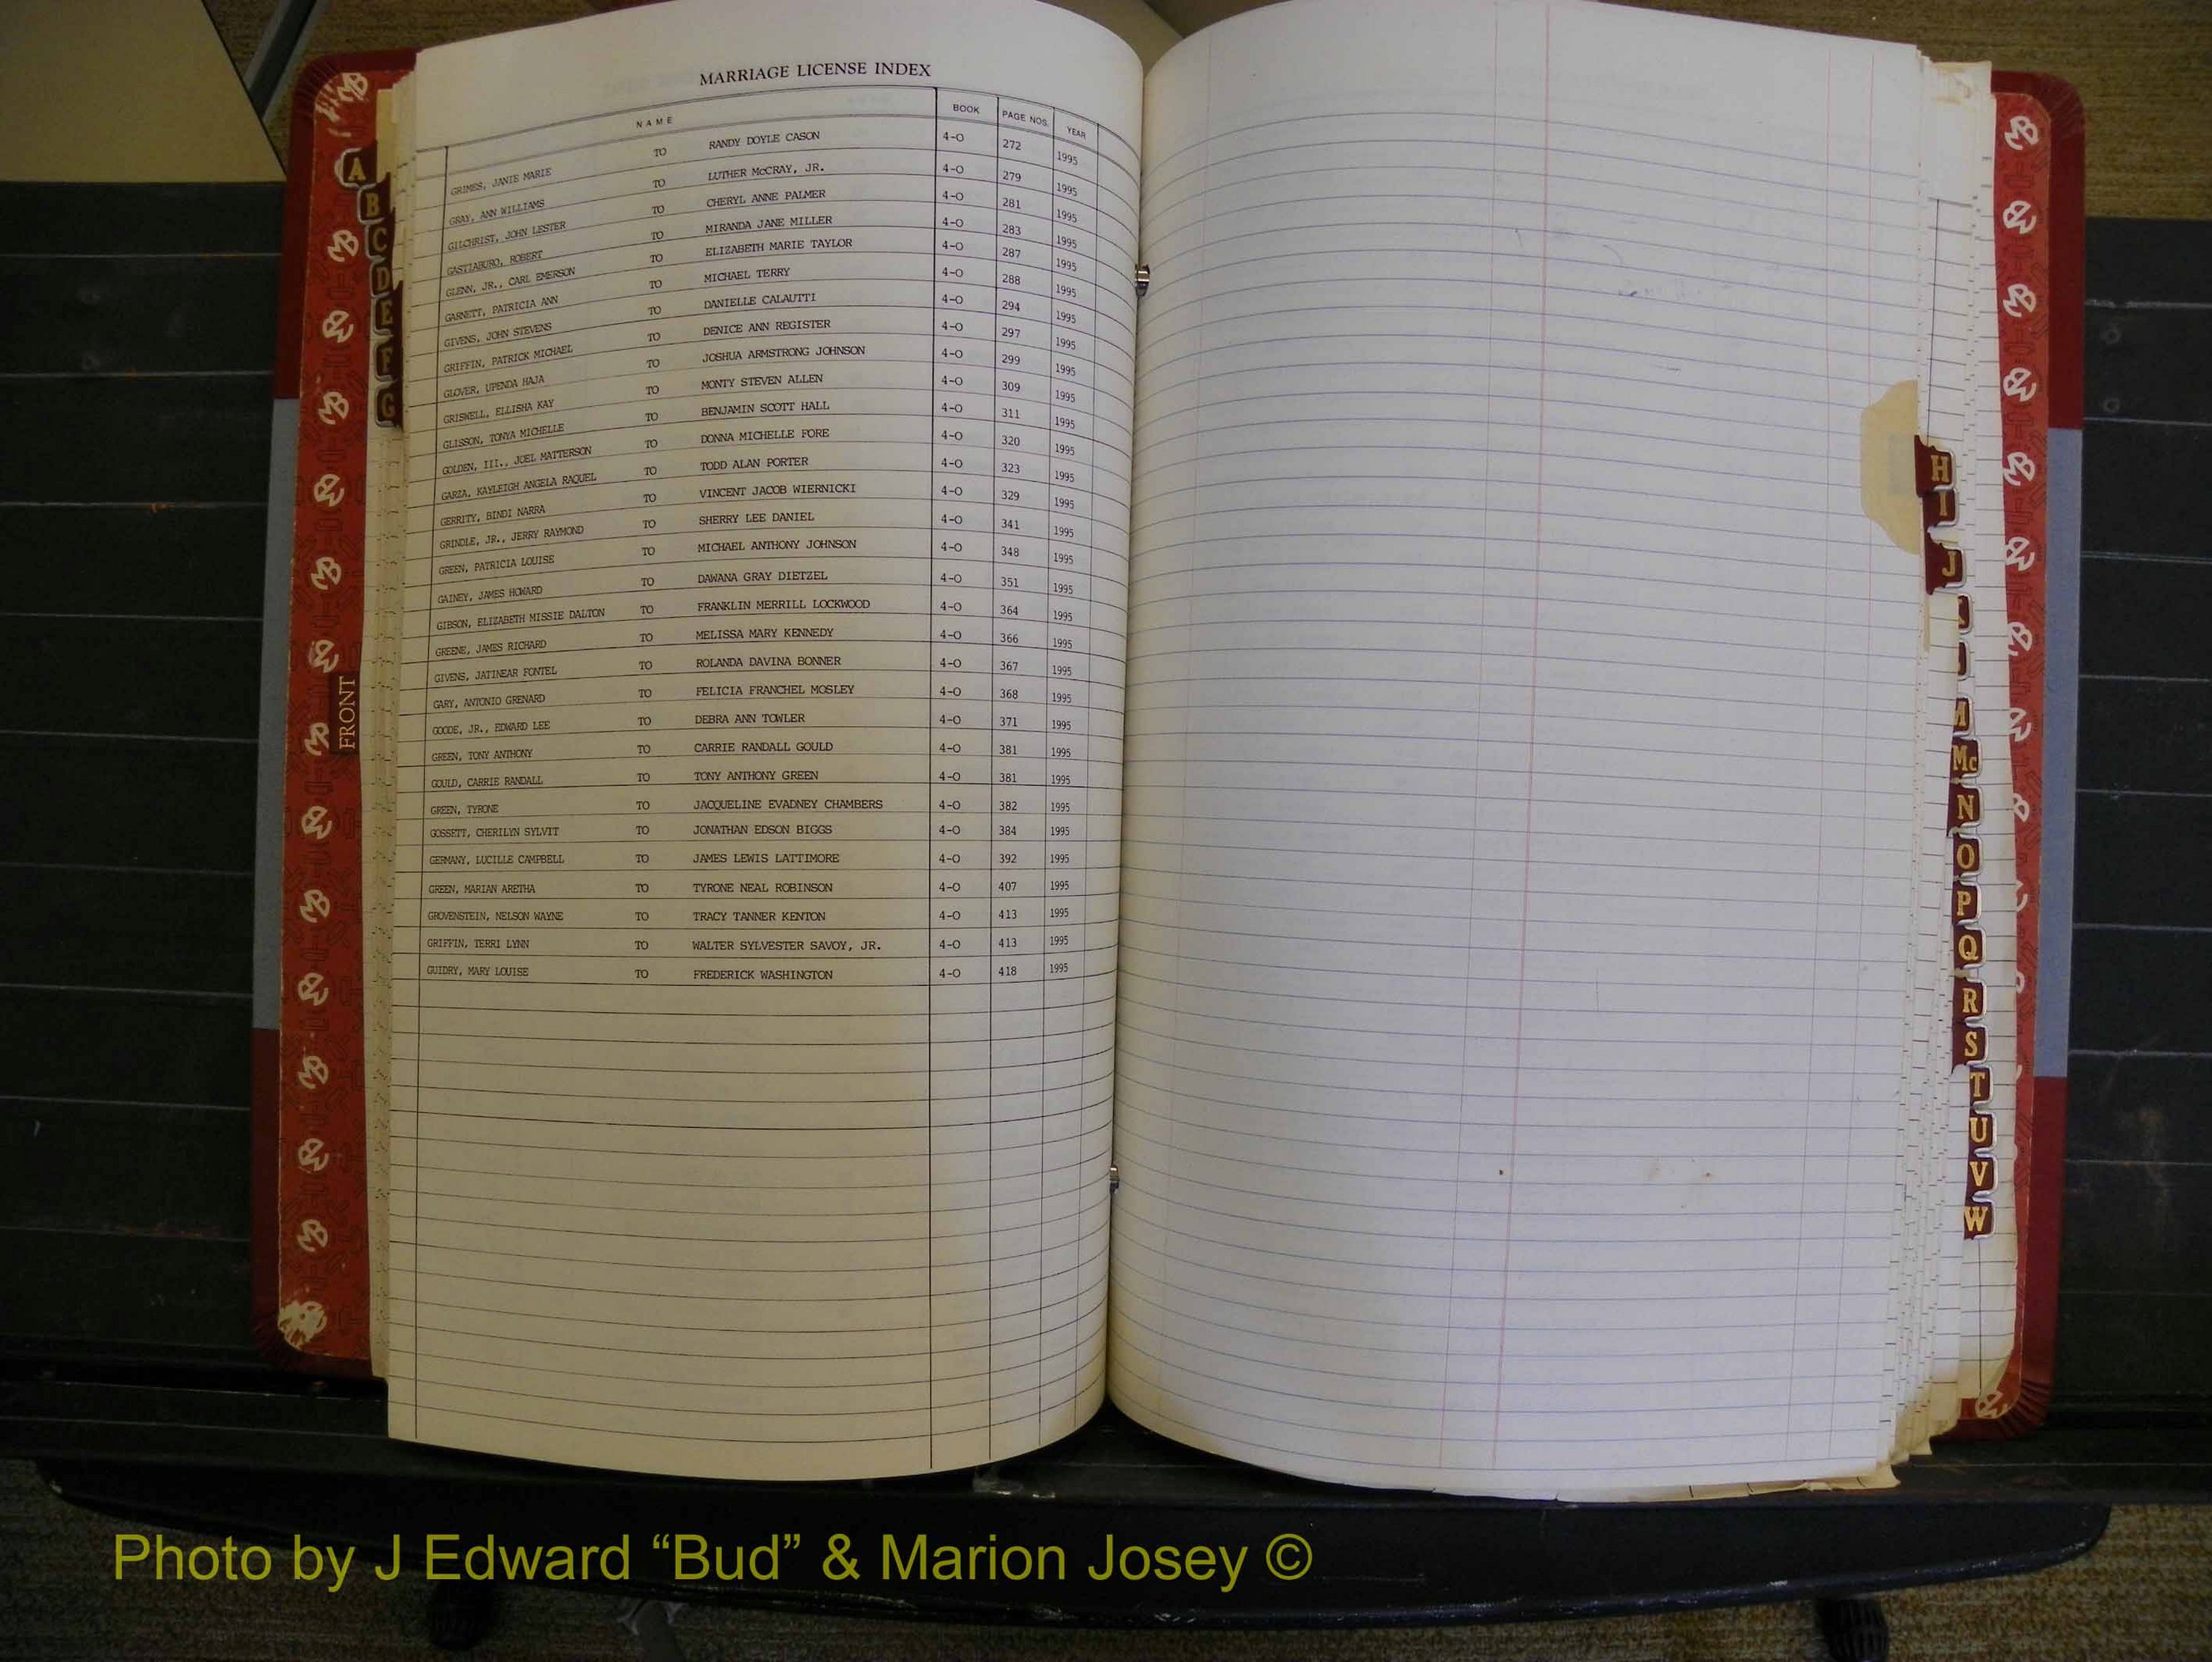 MARRIAGE LICENSE INDEX
NAME BOOK PAGE NOS. YEAR
GRIMES, JANIE MARIE TO RANDY DOYLE CASON 4-O 272 1995
GRAY, ANN WILLIAMS TO LUTHER McCRAY, JR. 4-O 279 1995
GILCHRIST, JOHN LESTER TO CHERYL ANNE PALMER 4-O 281 1995
GASTIABURO, ROBERT TO MIRANDA JANE MILLER 4-O 283 1995
GLENN, JR., CARL EMERSON TO ELIZABETH MARIE TAYLOR 4-O 287 1995
GARNETT, PATRICIA ANN TO MICHAEL TERRY 4-O 288 1995
GIVENS, JOHN STEVENS TO DANIELLE CALAUTTI 4-O 294 1995
GRIFFIN, PATRICK MICHAEL TO DENICE ANN REGISTER 4-O 297 1995
GLOVER, UPENDA HAJA TO JOSHUA ARMSTRONG JOHNSON 4-O 299 1995
GRISWELL, ELLISHA KAY TO MONTY STEVEN ALLEN 4-O 309 1995
GLISSON, TONYA MICHELLE TO BENJAMIN SCOTT HALL 4-O 311 1995
GOLDEN, III., JOEL MATTERSON TO DONNA MICHELLE FORE 4-O 320 1995
GARZA, KAYLEIGH ANGELA RAQUEL TO TODD ALAN PORTER 4-O 323 1995
GERRITY, BINDI NARRA TO VINCENT JACOB WIERNICKI 4-O 329 1995
GRINDLE, JR., JERRY RAYMOND TO SHERRY LEE DANIEL 4-O 341 1995
GREEN, PATRICIA LOUISE TO MICHAEL ANTHONY JOHNSON 4-O 348 1995
GAINEY, JAMES HOWARD TO DAWANA GRAY DIETZEL 4-O 351 1995
GIBSON, ELIZABETH MISSIE DALTON TO FRANKLIN MERRILL LOCKWOOD 4-O 364 1995
GREENE, JAMES RICHARD TO MELISSA MARY KENNEDY 4-O 366 1995
GIVENS, JATINEAR FONTEL TO ROLANDA DAVINA BONNER 4-O 367 1995
GARY, ANTONIO GRENARD TO FELICIA FRANCHEL MOSLEY 4-O 368 1995
GOODE, JR., EDWARD LEE TO DEBRA ANN TOWLER 4-O 371 1995
GREEN, TONY ANTHONY TO CARRIE RANDALL GOULD 4-O 381 1995
GOULD, CARRIE RANDALL TO TONY ANTHONY GREEN 4-O 381 1995
GREEN, TYRONE TO JACQUELINE EVADNEY CHAMBERS 4-O 382 1995
GOSSETT, CHERILYN SYLVIT TO JONATHAN EDSON BIGGS 4-O 384 1995
GERMANY, LUCILLE CAMPBELL TO JAMES LEWIS LATTIMORE 4-O 392 1995
GREEN, MARIAN ARETHA TO TYRONE NEAL ROBINSON 4-O 407 1995
GROVENSTEIN, NELSON WAYNE TO TRACY TANNER KENTON 4-O 413 1995
GRIFFIN, TERRI LYNN TO WALTER SYLVESTER SAVOY, JR. 4-O 413 1995
GUIDRY, MARY LOUISE TO FREDERICK WASHINGTON 4-O 418 1995
A
B
C
D
E
F
G
FRONT
H
I
J
M
Mc
N
O
P
Q
R
S
T
U
V
W
Photo by J Edward “Bud” & Marion Josey ©